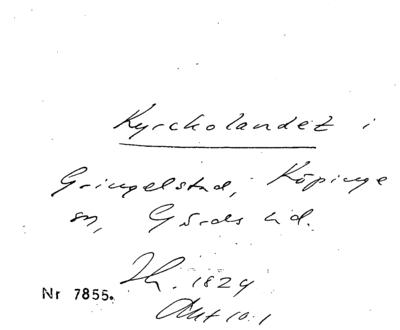 Kyrckolandet i
Gringelstad, Köpinge
sn, Gärds hd.
Th. 1824
Akt 10:1
Nr 7855.